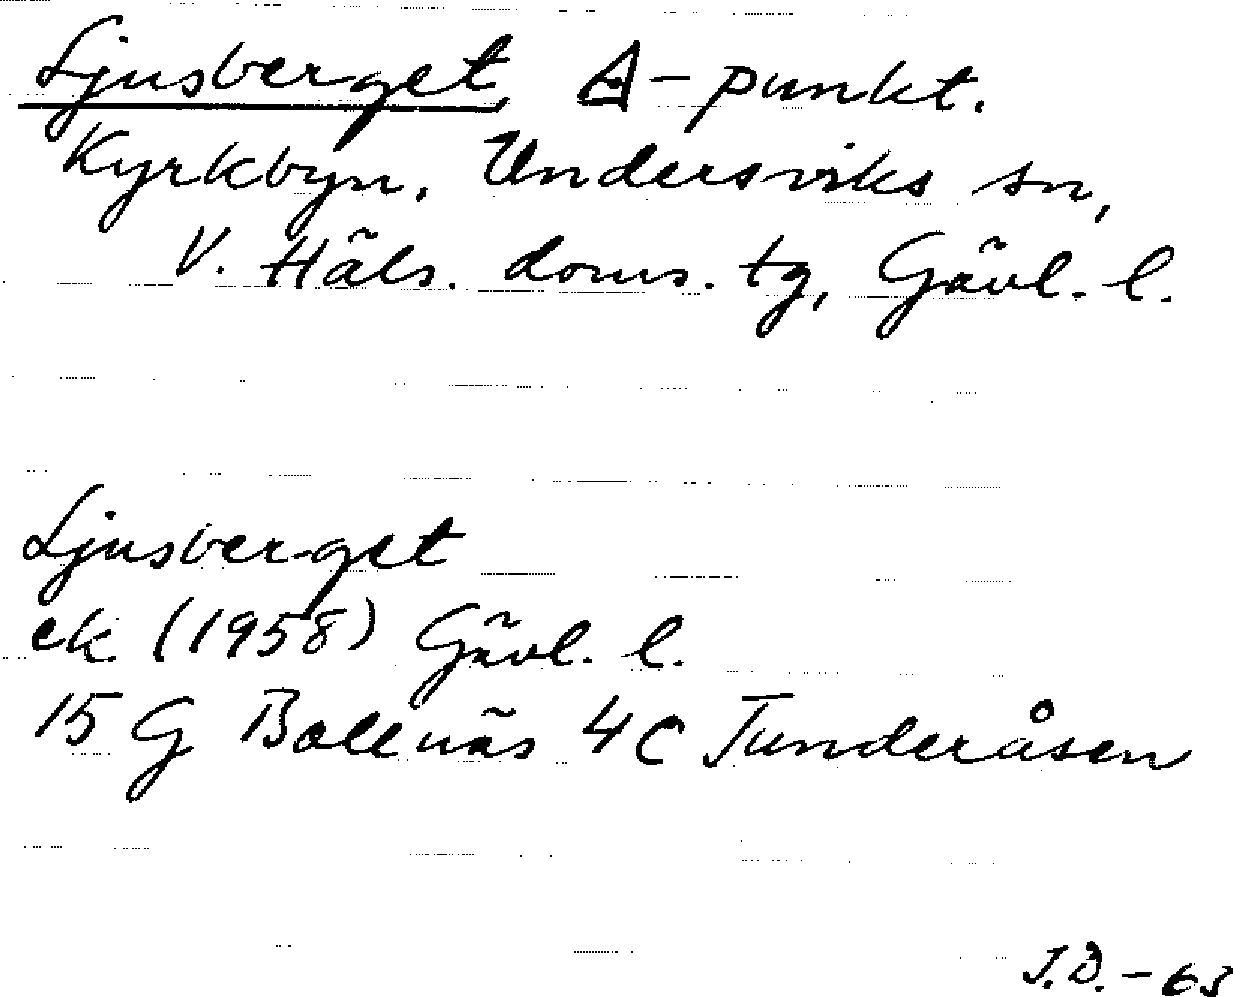 Ljusberget, △-punkt.
Kyrkbyn, Undersviks sn,
V. Häls. doms. tg, Gävl. l.
Ljusberget
ek. (1958) Gävl. l.
15 G Bollnäs 4 C Tunderåsen
J.D. - 63